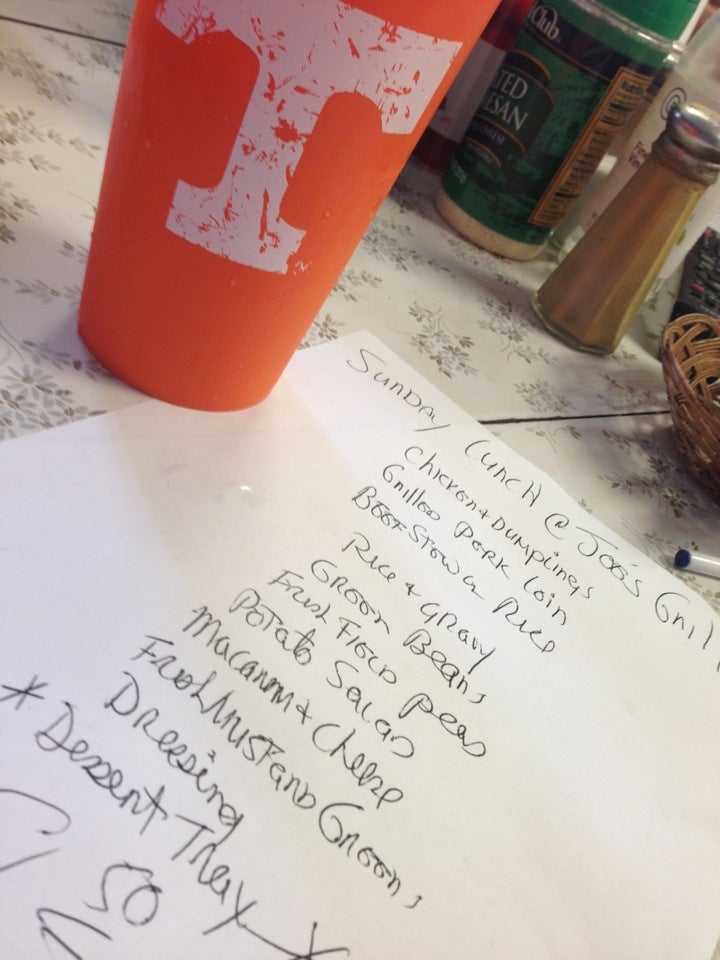 T
Club
TED
ESAN
CHEESE
Sunday Lunch @ Joe's Grill
Chicken & Dumplings
Grilled Pork Loin
Beef Stew or Rice
Rice & Gravy
Green Beans
Fresh Field Peas
Potato Salad
Macaroni & Cheese
Fresh Mustard Greens
Dressing
* Dessert Tray *
50